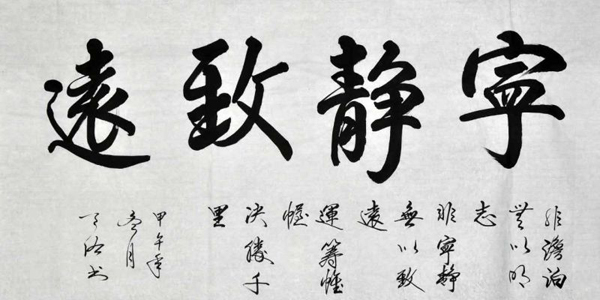 寧静致遠
非澹泊
無以明
志
非寧静
無以致
遠
運籌帷
幄
决勝千
里
甲午年
月
书